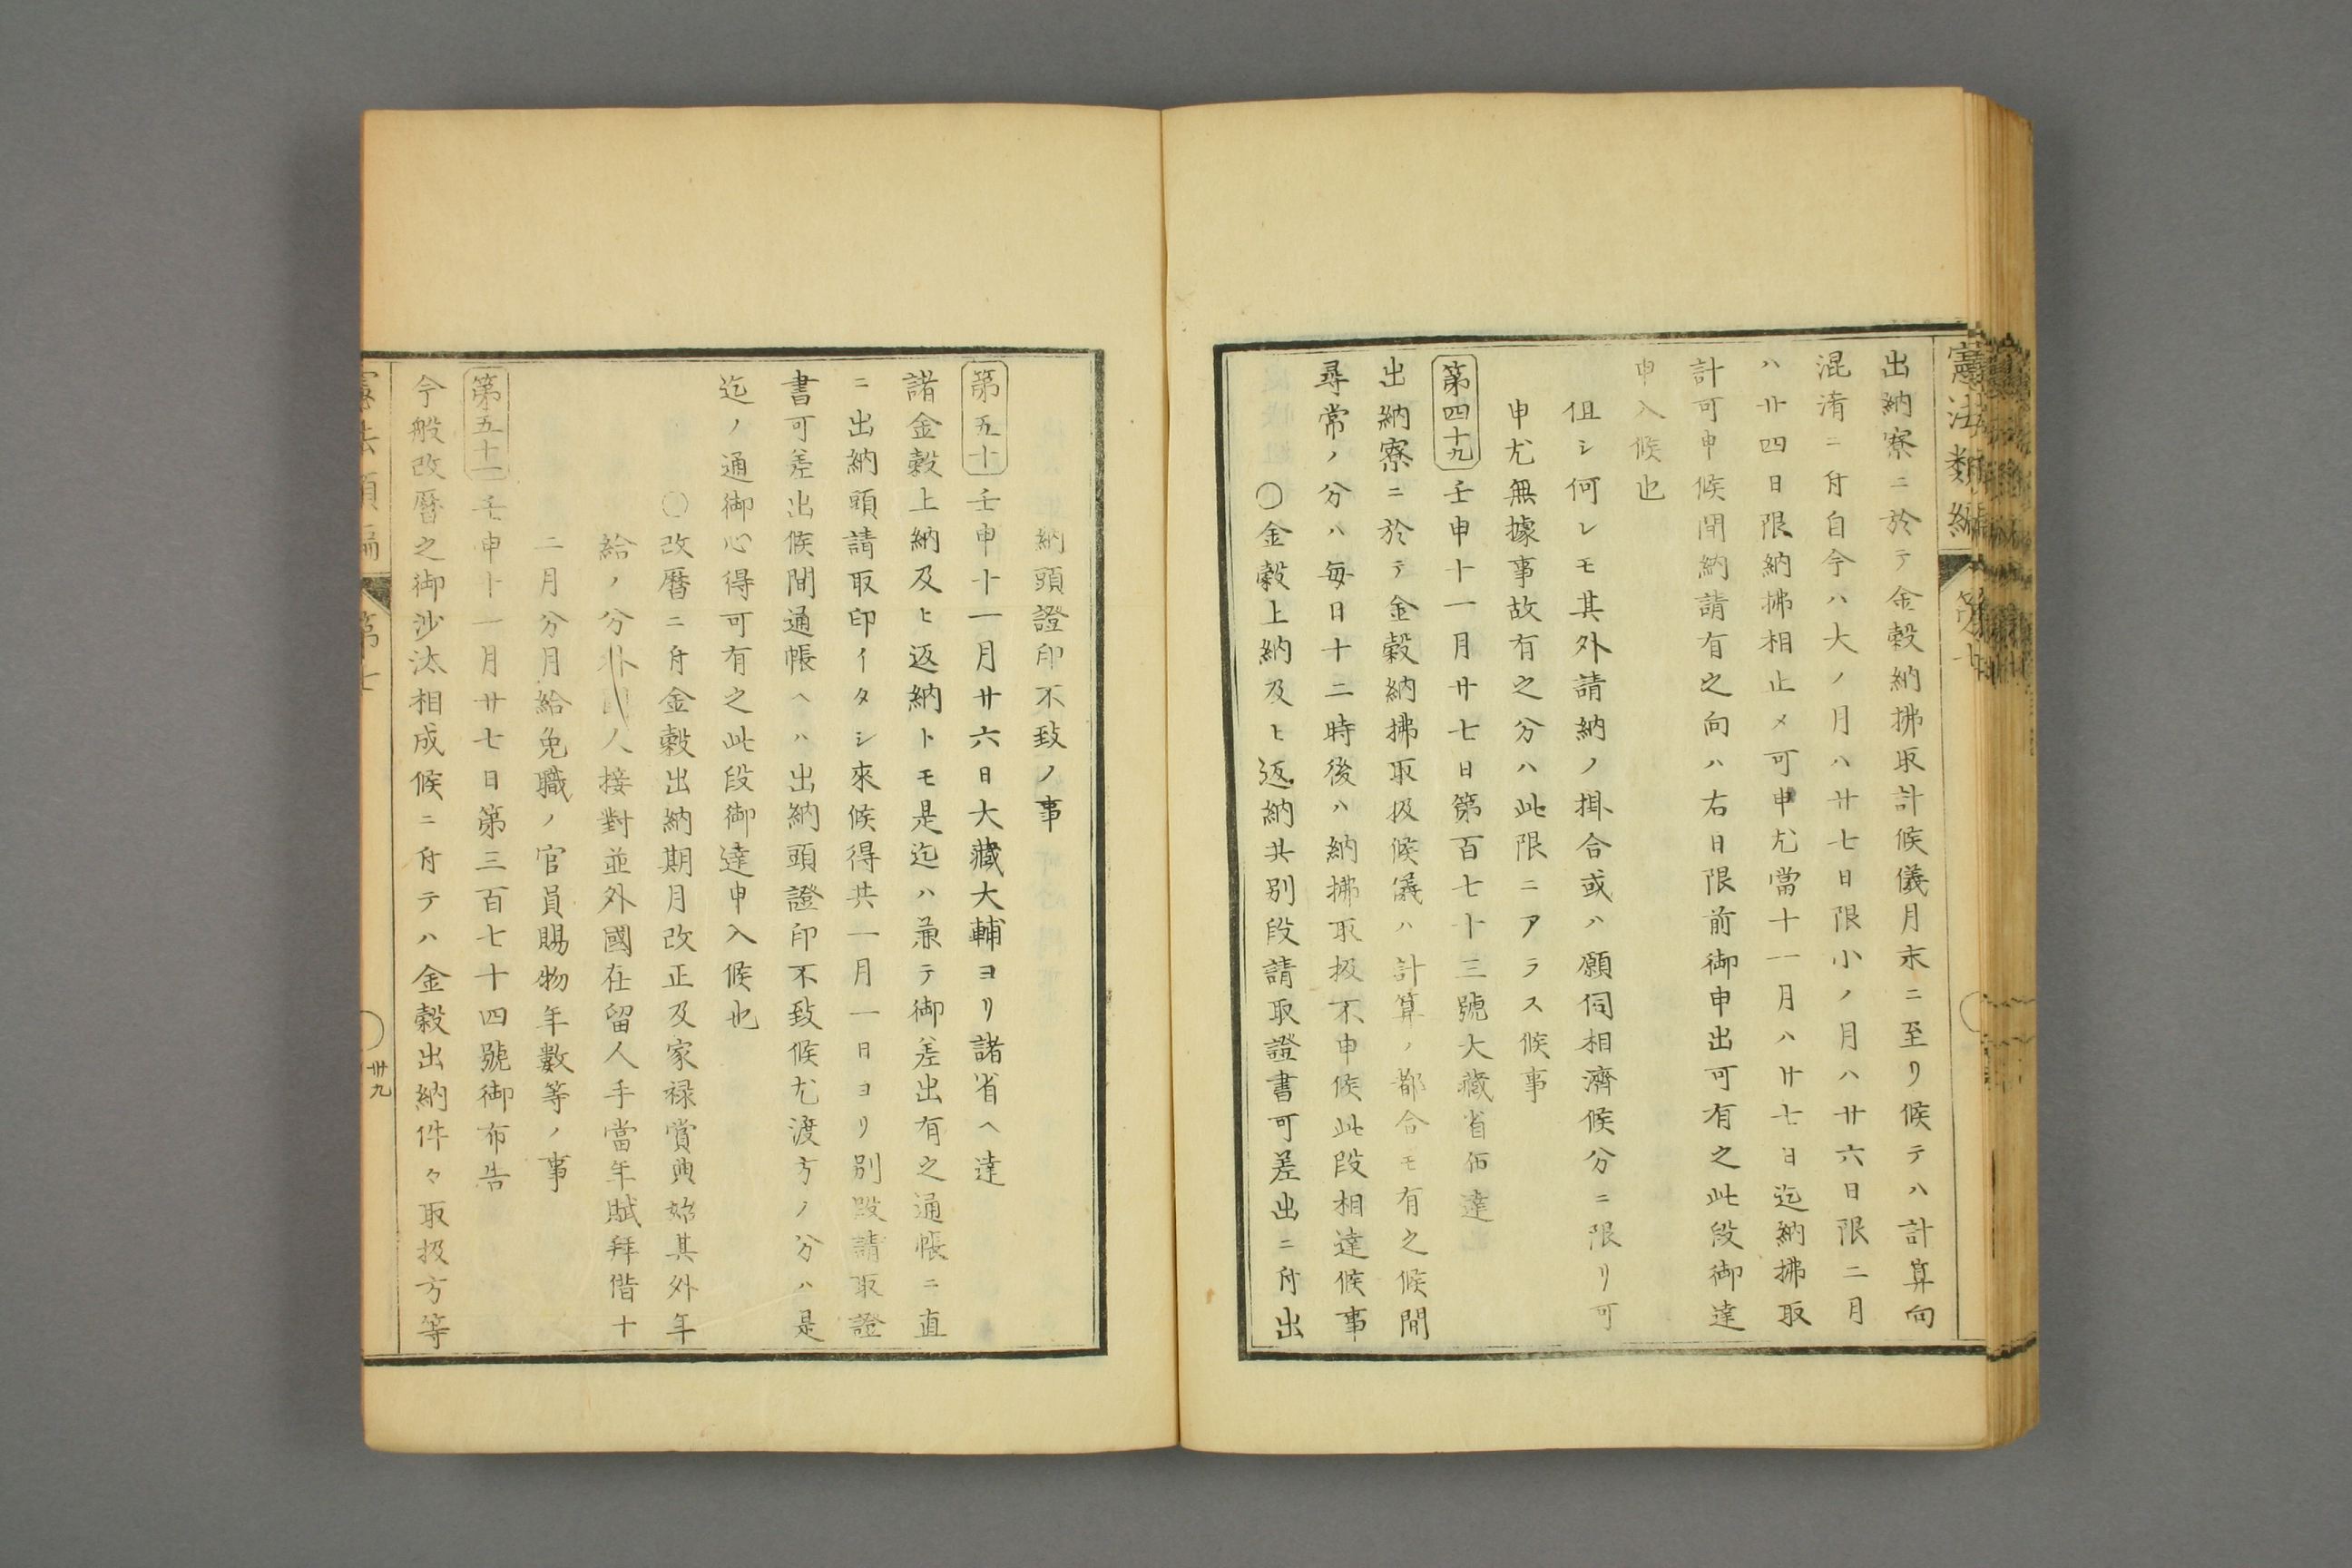 憲法類編 第七
出納寮ニ於テ金穀納拂取計候儀月末ニ至リ候テハ計算向
混淆ニ付自今ハ大ノ月ハ廿七日限小ノ月ハ廿六日限二月
ハ廿四日限納拂相止メ可申尤當十一月ハ廿七日迄納拂取
計可申候間納請有之向ハ右日限前御申出可有之此段御達
申入候也
但シ何レモ其外請納ノ掛合或ハ願伺相濟候分ニ限リ可
申尤無據事故有之分ハ此限ニアラス候事
第四十九 壬申十一月廿七日第百七十三號大藏省布達
出納寮ニ於テ金穀納拂取扱候儀ハ計算ノ都合モ有之候間
尋常ノ分ハ毎日十二時後ハ納拂取扱不申候此段相達候事
〇金穀上納及ヒ返納共別段請取證書可差出ニ付出
納頭證印不致ノ事
第五十 壬申十一月廿六日大藏大輔ヨリ諸省ヘ達
諸金穀上納及ヒ返納トモ是迄ハ兼テ御差出有之通帳ニ直
ニ出納頭請取印イタシ來候得共一月一日ヨリ別段請取證
書可差出候間通帳ヘハ出納頭證印不致候尤渡方ノ分ハ是
迄ノ通御心得可有之此段御達申入候也
〇改曆ニ付金穀出納期月改正及家禄賞典始其外年
給ノ分外國人接對並外國在留人手當年賦拜借十
二月分月給免職ノ官員賜物年數等ノ事
第五十一 壬申十一月廿七日第三百七十四號御布告
今般改曆之御沙汰相成候ニ付テハ金穀出納件々取扱方等
憲法類編 第七 〇 卅九